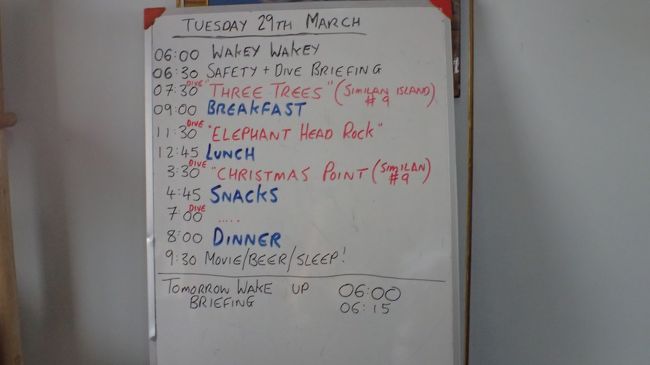 TUESDAY 29TH MARCH
06:00 WAKEY WAKEY
06:30 SAFETY + DIVE BRIEFING
07:30 DIVE "THREE TREES" (SIMILAN ISLAND #9)
09:00 BREAKFAST
11:30 DIVE "ELEPHANT HEAD ROCK"
12:45 LUNCH
3:30 DIVE "CHRISTMAS POINT (SIMILAN #9)
4:45 SNACKS
7:00 DIVE .....
8:00 DINNER
9:30 MOVIE/BEER/SLEEP!
TOMORROW WAKE UP 06:00
BRIEFING 06:15